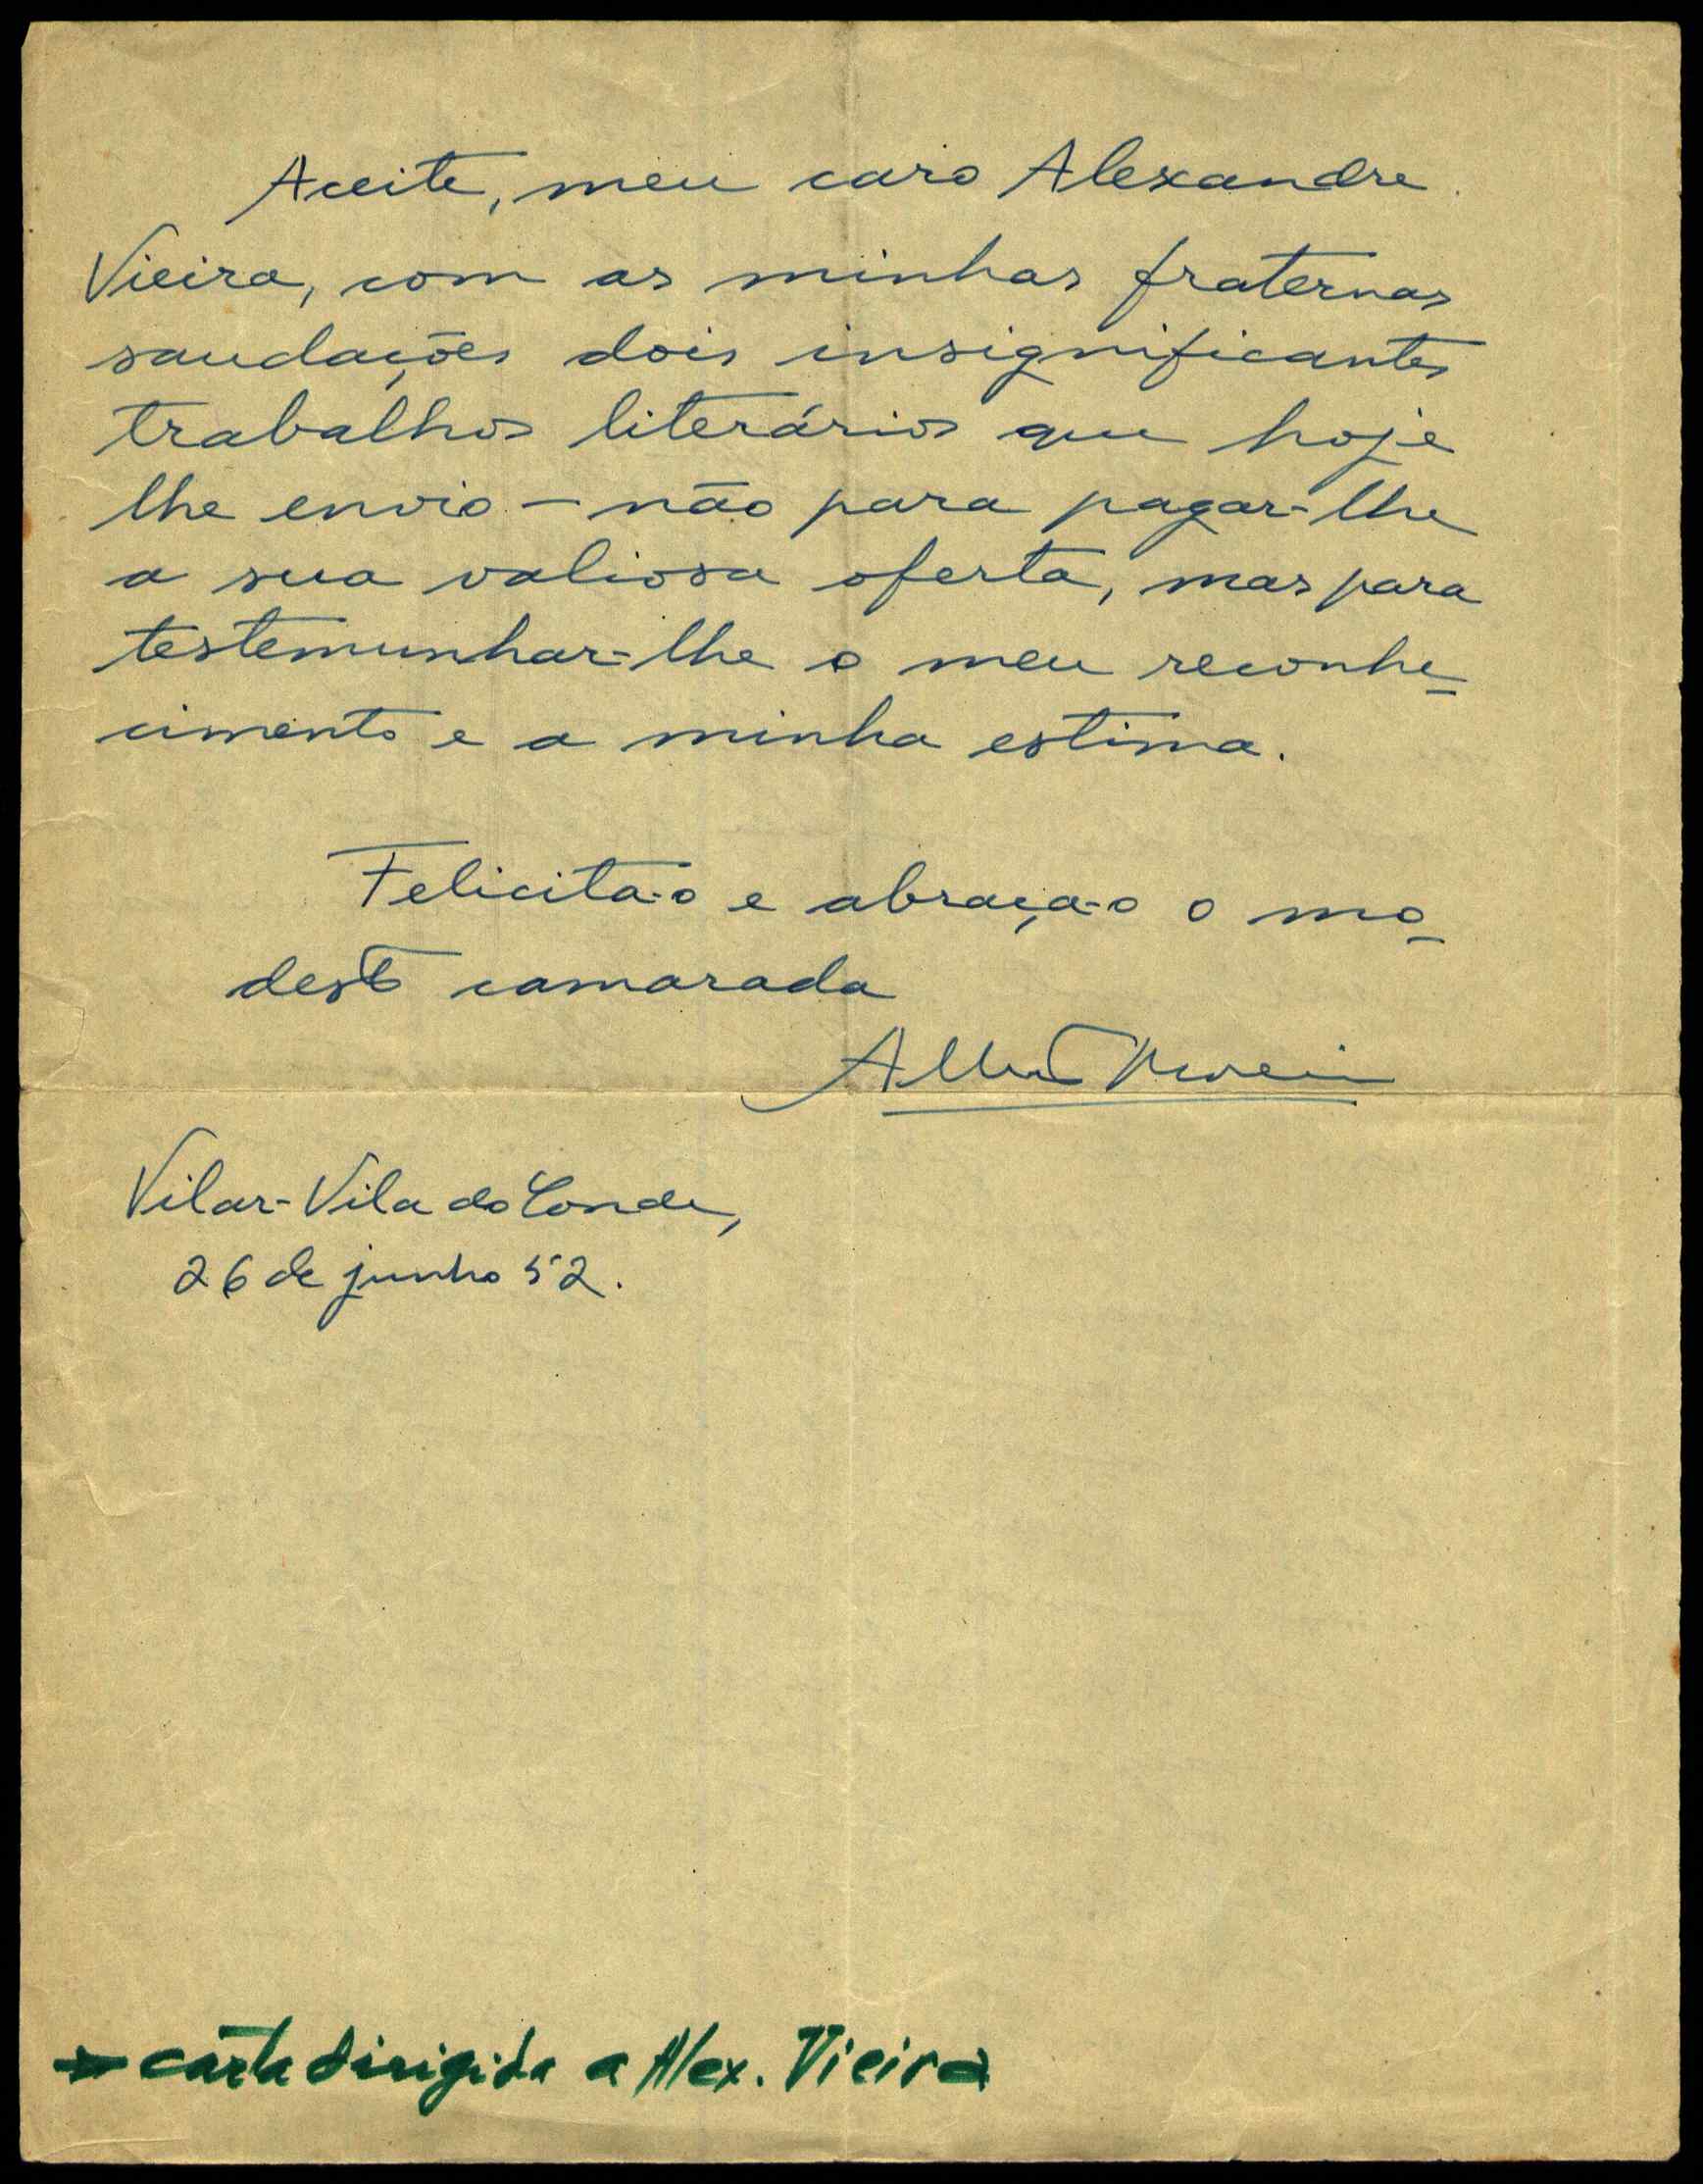 Aceite, meu caro Alexandre
Vieira, com as minhas fraternas
saudações dois insignificantes
trabalhos literários que hoje
lhe envio – não para pagar-lhe
a sua valiosa oferta, mas para
testemunhar-lhe o meu reconhe-
cimento e a minha estima.
Felicita-o e abraça-o o mo-
desto camarada
Vilar-Vila do Conde,
26 de junho 52.
→ carta dirigida a Alex. Vieira